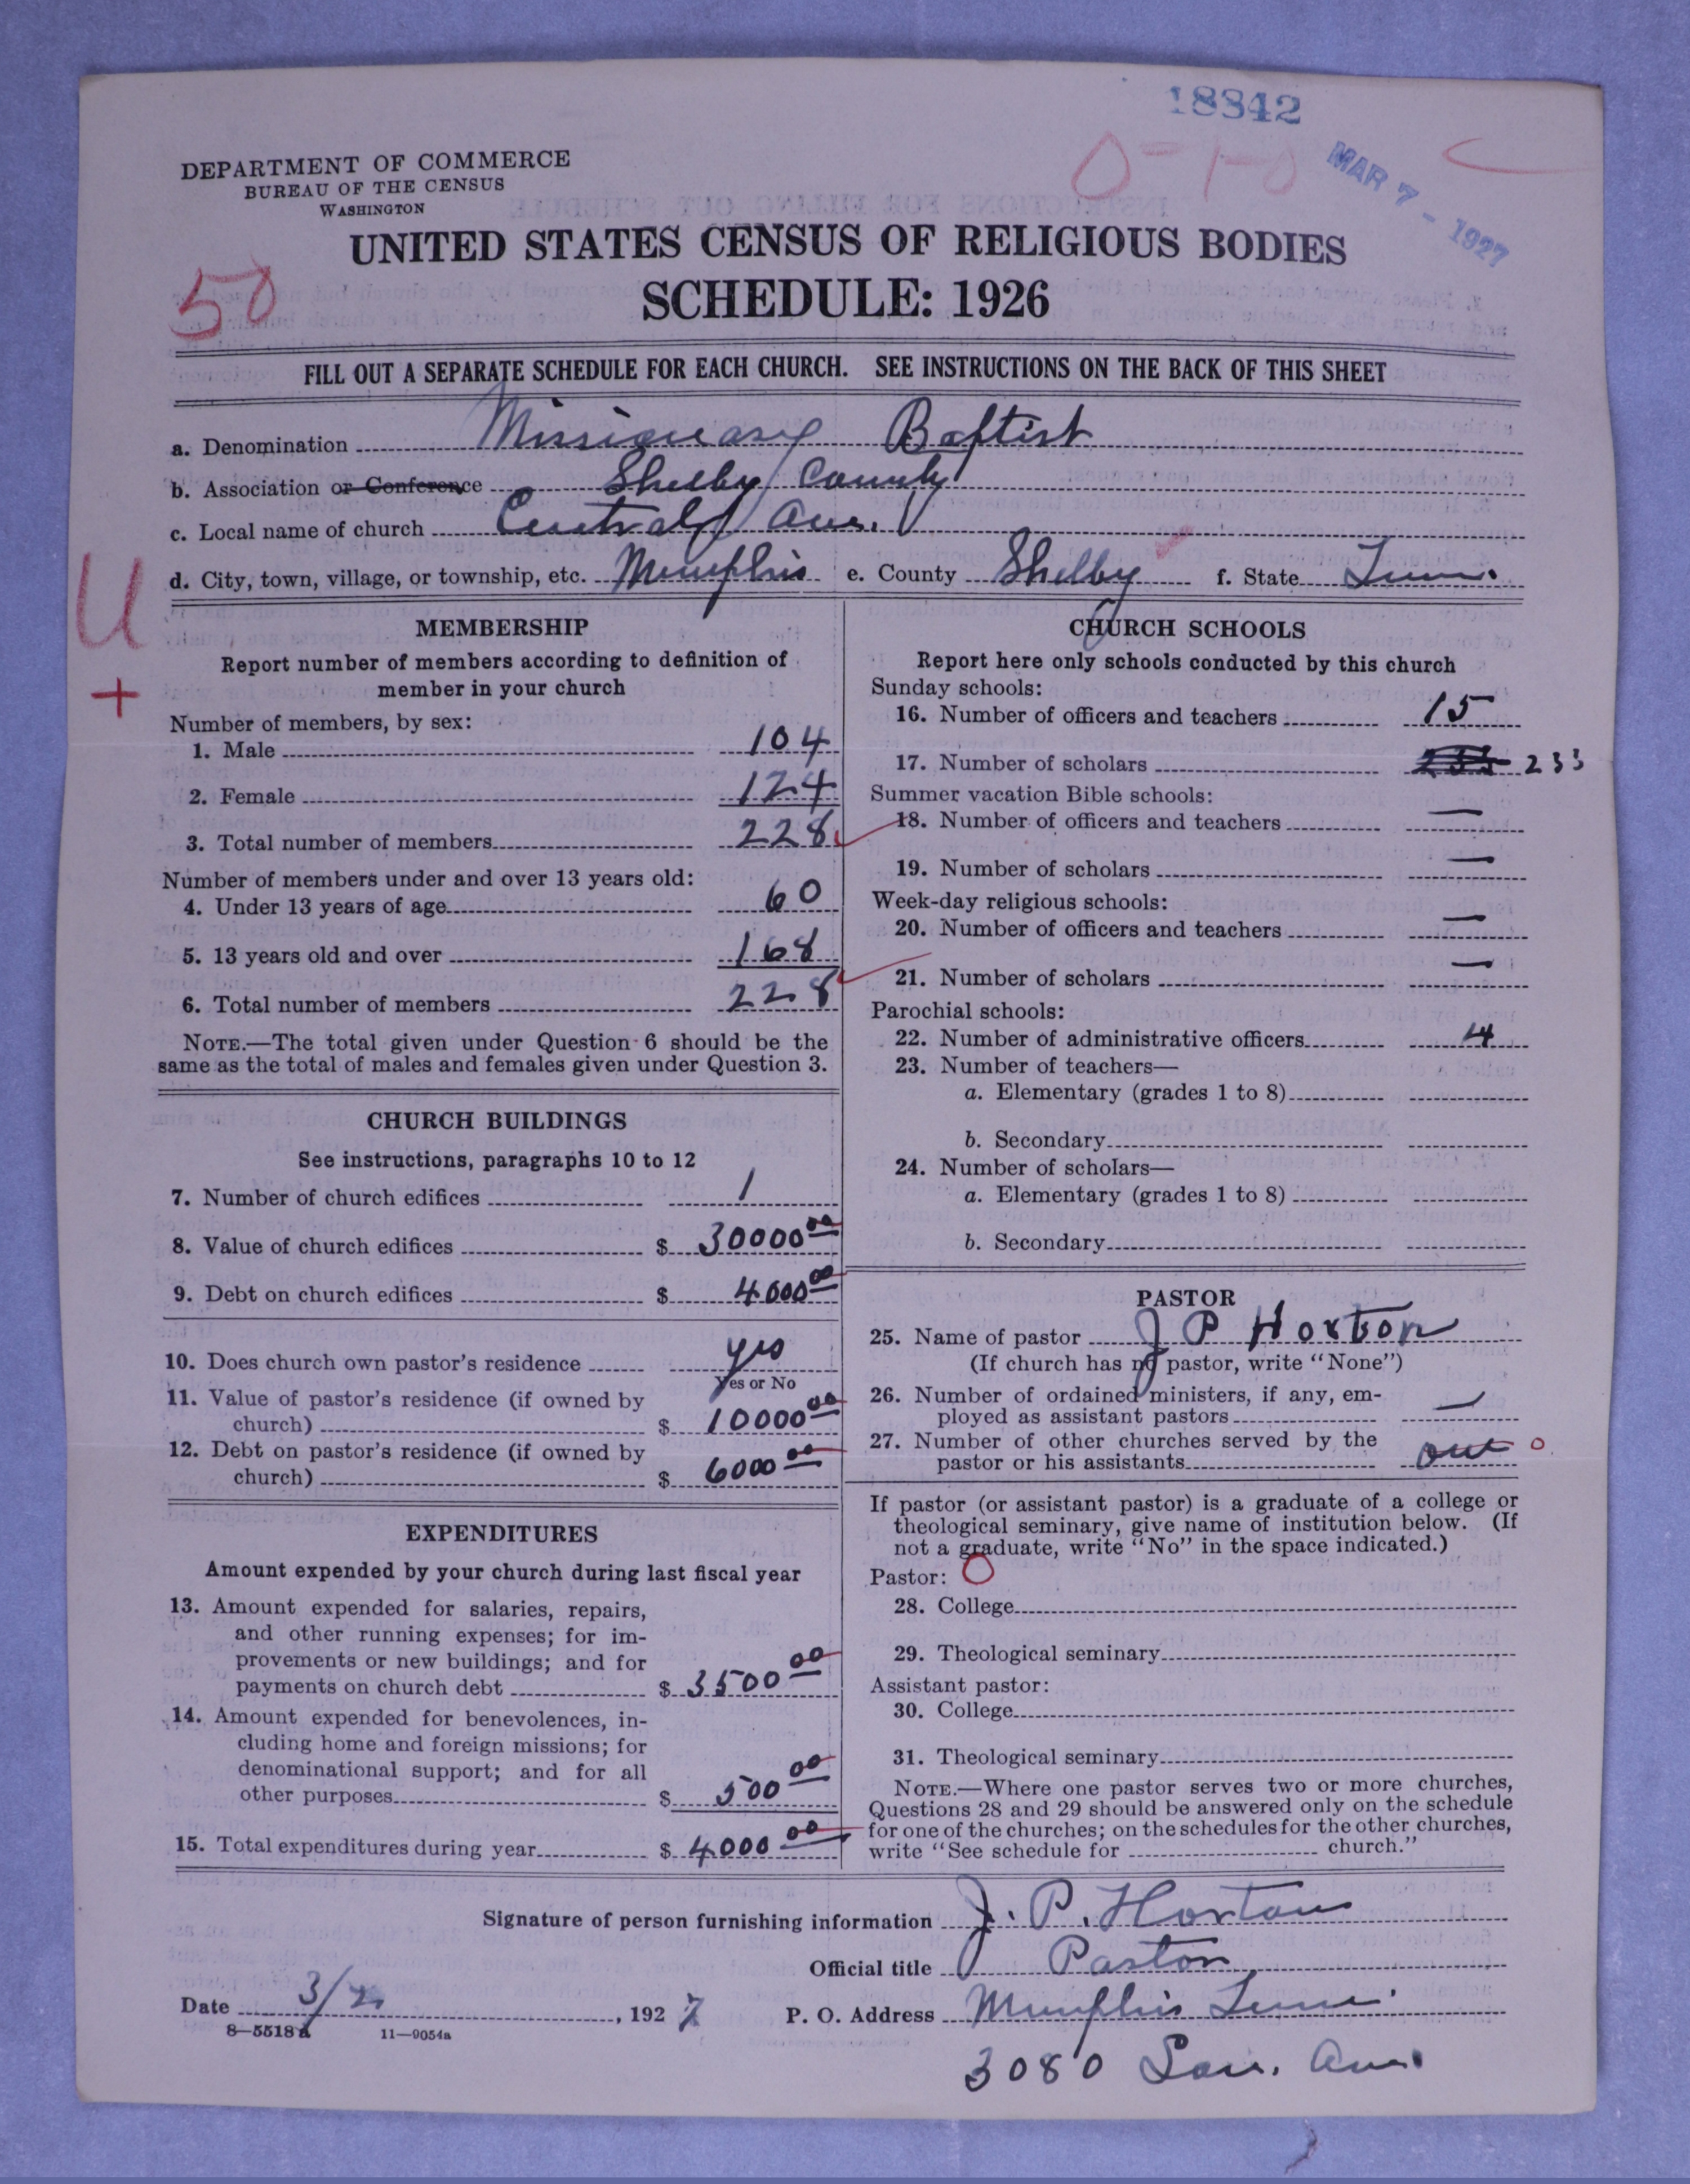 18842
0-1-0
MAR 7 - 1927
DEPARTMENT OF COMMERCE
BUREAU OF THE CENSUS
WASHINGTON
UNITED STATES CENSUS OF RELIGIOUS BODIES
SCHEDULE: 1926
50
FILL OUT A SEPARATE SCHEDULE FOR EACH CHURCH. SEE INSTRUCTIONS ON THE BACK OF THIS SHEET
a. Denomination Missionary Baptist
b. Association or Conference Shelby County
c. Local name of church Central Ave.
d. City, town, village, or township, etc. Memphis e. County Shelby f. State Tenn.
U
+
MEMBERSHIP
Report number of members according to definition of
member in your church
Number of members, by sex:
1. Male 104
2. Female 124
3. Total number of members 228
Number of members under and over 13 years old:
4. Under 13 years of age 60
5. 13 years old and over 168
6. Total number of members 228
NOTE.—The total given under Question 6 should be the
same as the total of males and females given under Question 3.
CHURCH BUILDINGS
See instructions, paragraphs 10 to 12
7. Number of church edifices 1
8. Value of church edifices $ 30000 00
9. Debt on church edifices $ 4000 00
10. Does church own pastor's residence yes
Yes or No
11. Value of pastor's residence (if owned by
church) $ 10000 00
12. Debt on pastor's residence (if owned by
church) $ 6000 00
EXPENDITURES
Amount expended by your church during last fiscal year
13. Amount expended for salaries, repairs,
and other running expenses; for im-
provements or new buildings; and for
payments on church debt $ 3500 00
14. Amount expended for benevolences, in-
cluding home and foreign missions; for
denominational support; and for all
other purposes $ 500 00
15. Total expenditures during year $ 4000 00
CHURCH SCHOOLS
Report here only schools conducted by this church
Sunday schools:
16. Number of officers and teachers 15
17. Number of scholars 233
Summer vacation Bible schools:
18. Number of officers and teachers —
19. Number of scholars —
Week-day religious schools:
20. Number of officers and teachers —
21. Number of scholars —
Parochial schools:
22. Number of administrative officers 4
23. Number of teachers—
a. Elementary (grades 1 to 8)
b. Secondary
24. Number of scholars—
a. Elementary (grades 1 to 8)
b. Secondary
PASTOR
25. Name of pastor J P Horton
(If church has no pastor, write "None")
26. Number of ordained ministers, if any, em-
ployed as assistant pastors —
27. Number of other churches served by the
pastor or his assistants 0
If pastor (or assistant pastor) is a graduate of a college or
theological seminary, give name of institution below. (If
not a graduate, write "No" in the space indicated.)
Pastor: O
28. College
29. Theological seminary
Assistant pastor:
30. College
31. Theological seminary
NOTE.—Where one pastor serves two or more churches,
Questions 28 and 29 should be answered only on the schedule
for one of the churches; on the schedules for the other churches,
write "See schedule for church."
Signature of person furnishing information J. P. Horton
Official title Pastor
Date 3/2, 1927 P. O. Address Memphis Tenn.
8—5518a 11—9054a
3080 Ave.